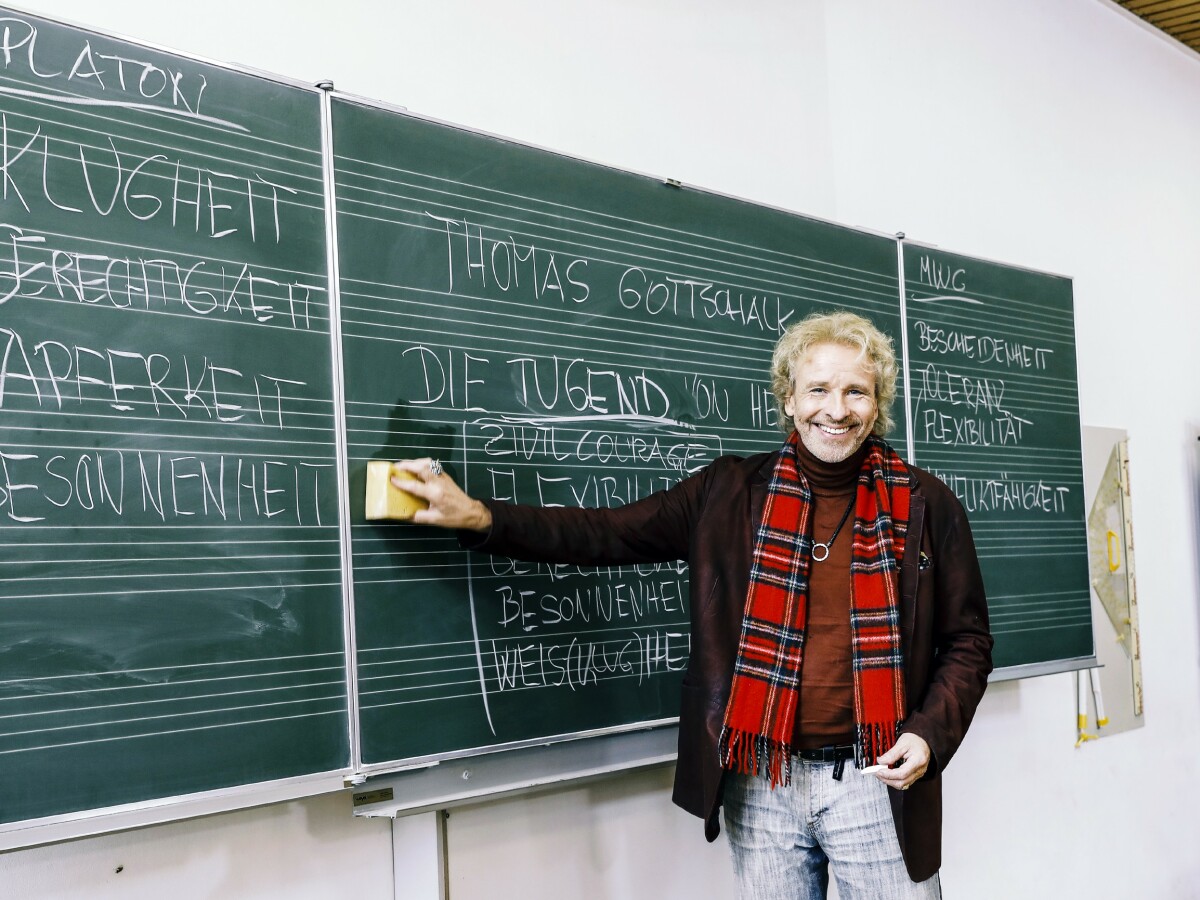 PLATON
KLUGHEIT
GERECHTIGKEIT
TAPFERKEIT
BESONNENHEIT
THOMAS GOTTSCHALK
DIE TUGEND VON HE
ZIVILCOURAGE
FLEXIBILI
GERECHTIGKE
BESONNENHEI
WEIS(UWG)HE
MWG
BESCHEIDENHEIT
TOLERANZ
FLEXIBILITÄT